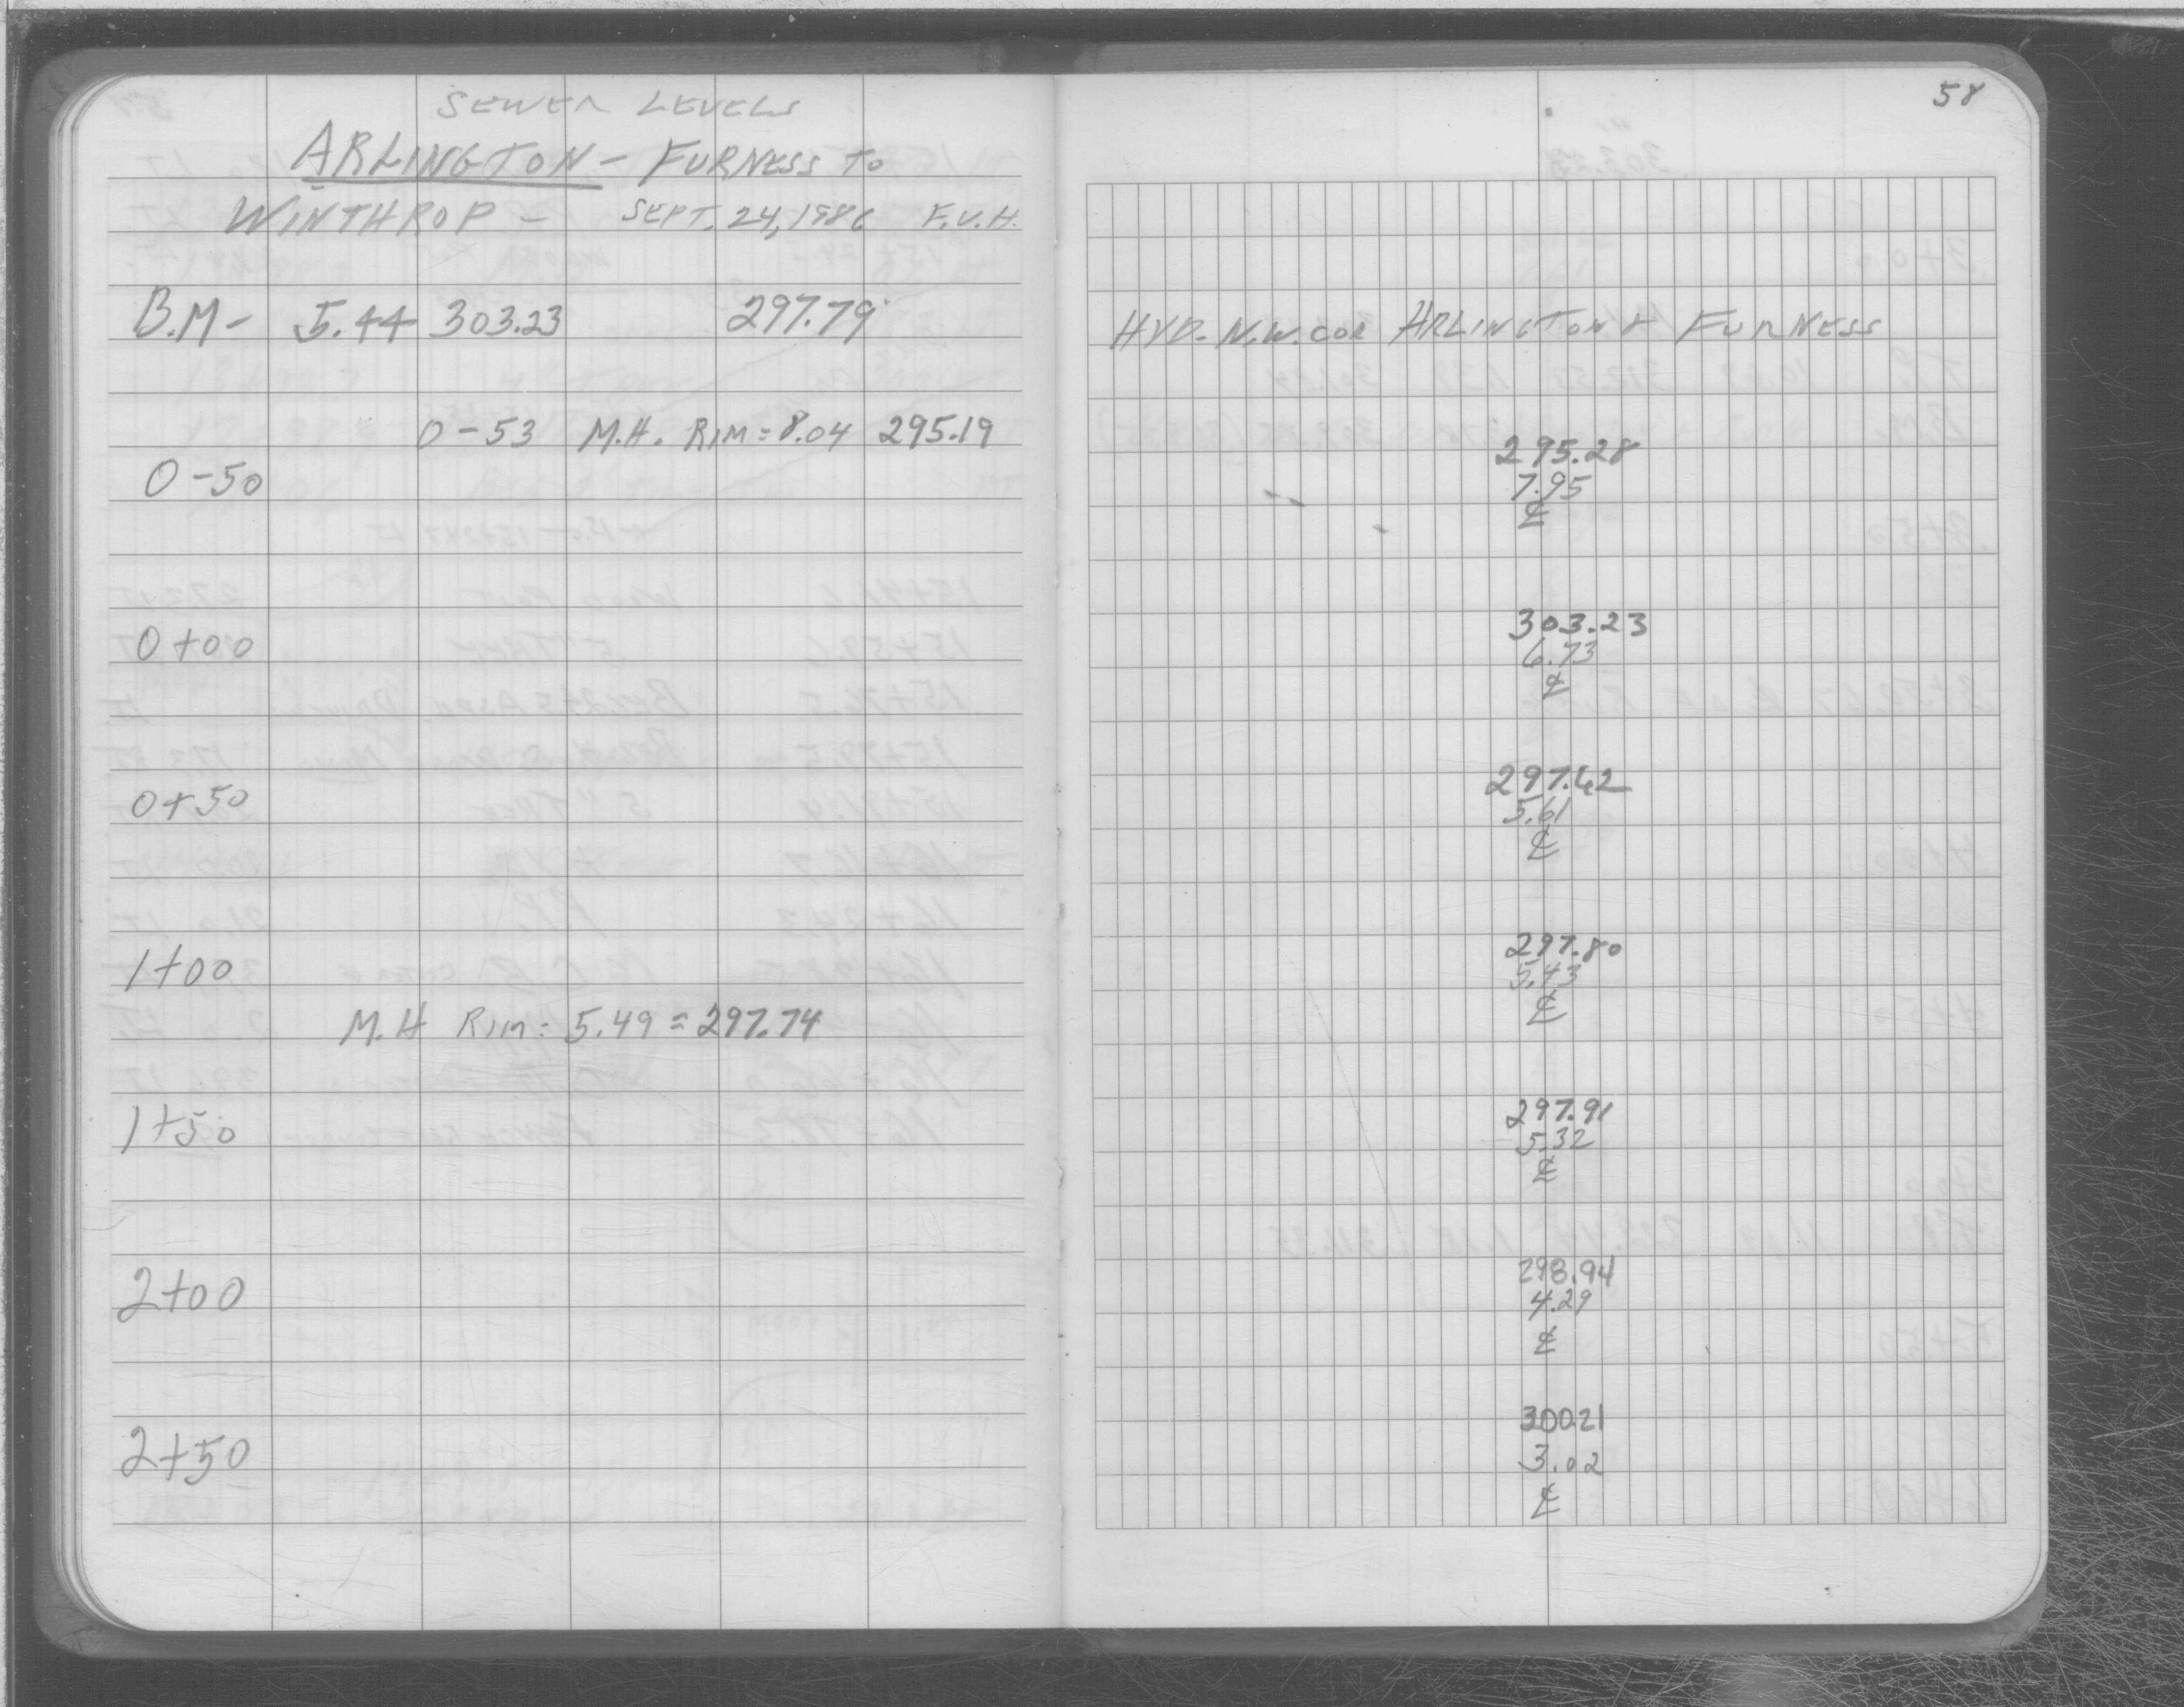 SEWER LEVELS
ARLINGTON - FURNESS TO
WINTHROP - SEPT. 24, 1986 F.V.H.
B.M - 5.44 303.23 297.79
0-53 M.H. RIM = 8.04 295.19
0-50
0+00
0+50
1+00
M.H RIM = 5.49 = 297.74
1+50
2+00
2+50
58
HYD. N.W. COR ARLINGTON & FURNESS
295.28
7.95
℄
303.23
6.73
℄
297.62
5.61
℄
297.80
5.43
℄
297.91
5.32
℄
298.94
4.29
℄
300.21
3.02
℄